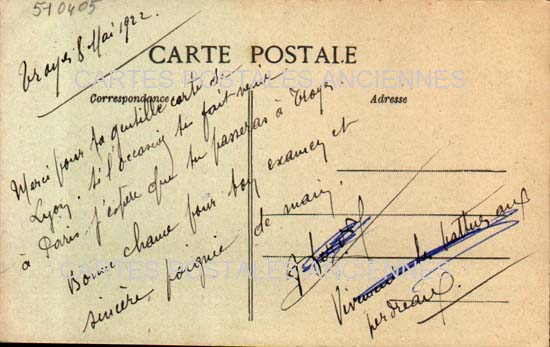 510405
Troyes 8 Mai 1922
CARTE POSTALE
CARTES POSTALES ANCIENNES
Correspondance
Adresse
Merci pour ta gentille carte de
Lyon. Si l'occasion te fait venir
à Paris j'espère que tu passeras à Troyes
Bonne chance pour ton examen et
sincère poignée de main.
CARTES POSTALES ANCIENNES
perdreaux.